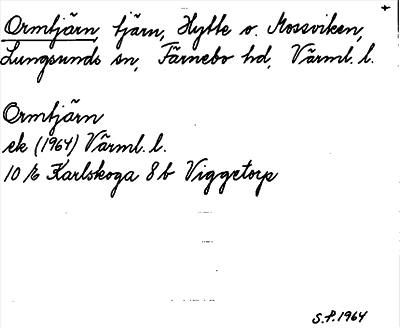 Ormtjärn, tjärn, Hytte o. Mossviken,
Lungsunds sn, Färnebo hd, Värml. l.
Ormtjärn
ek (1964) Värml. l.
10 /6 Karlskoga 8 b Viggetorp
S.P. 1964